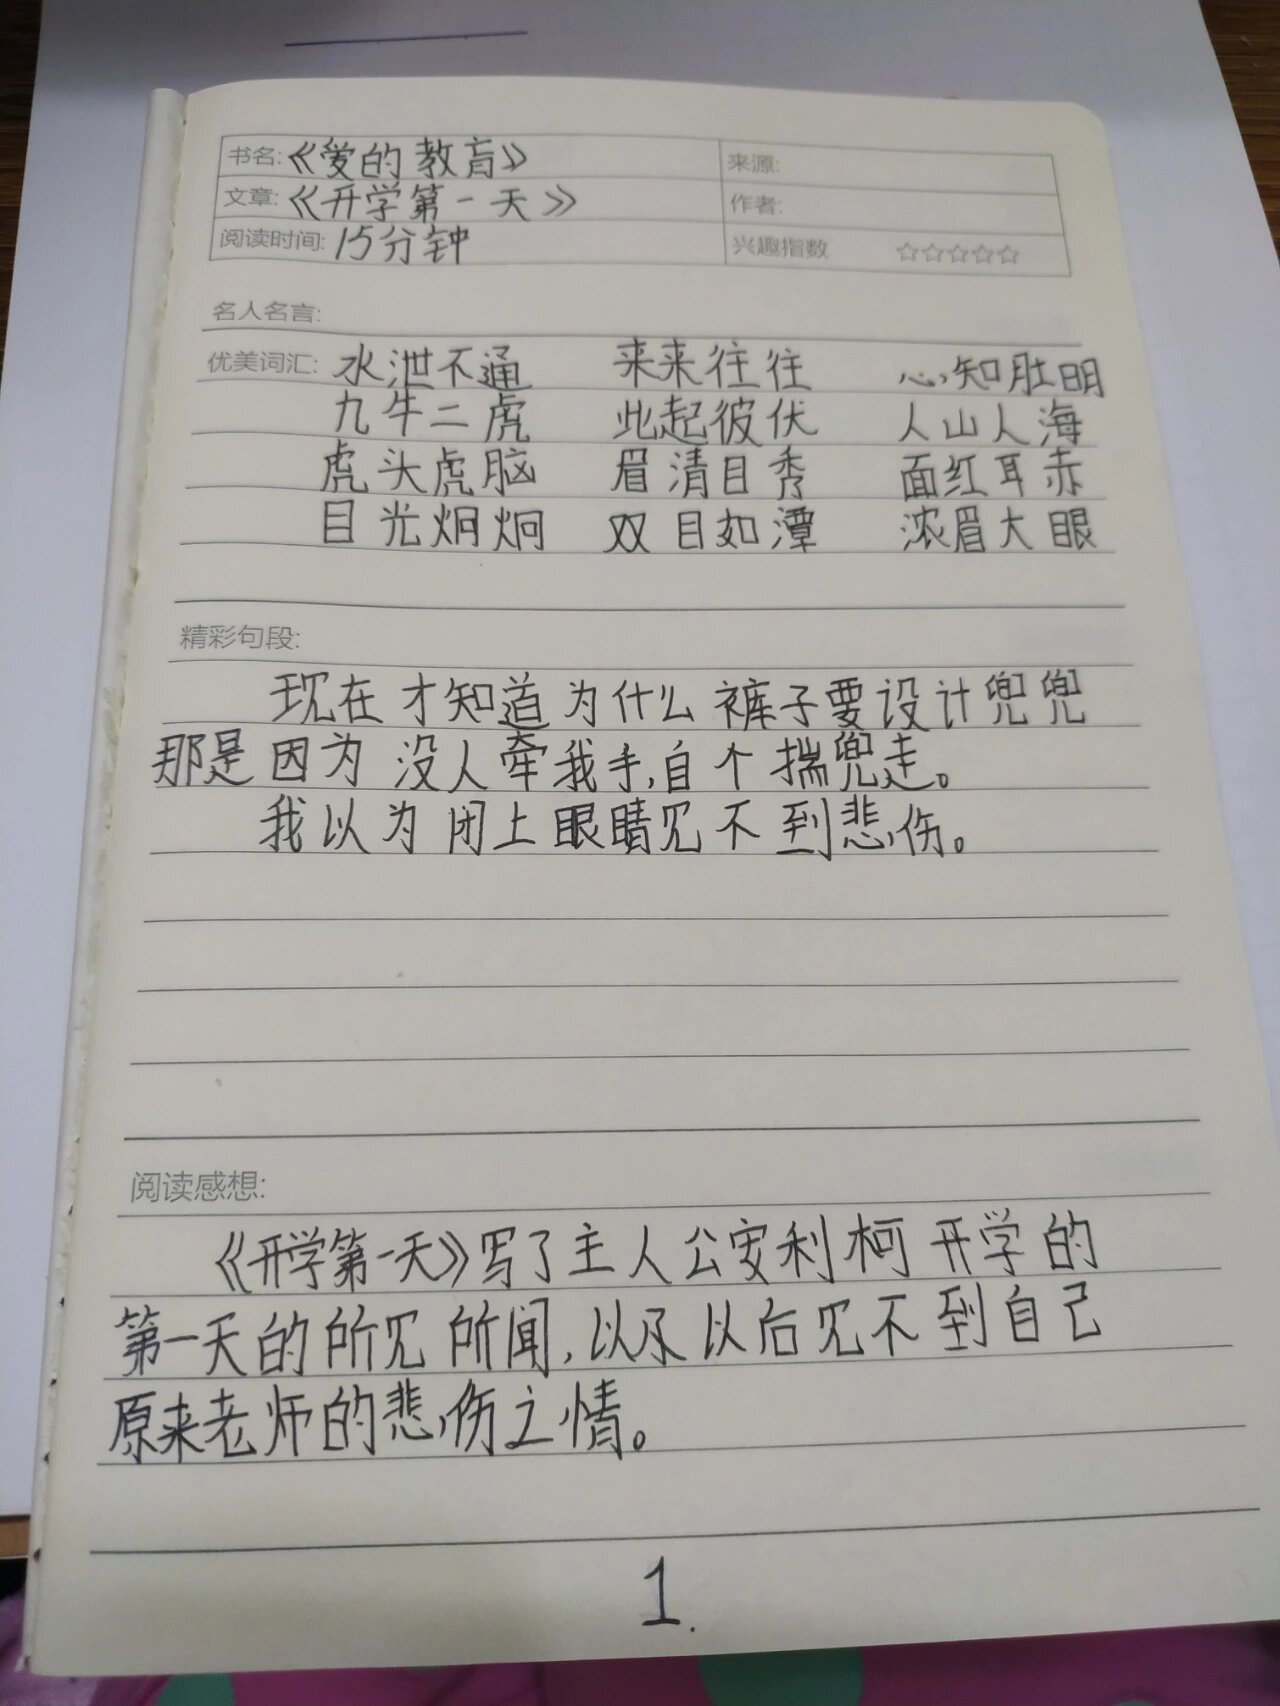 书名:《爱的教育》 来源:
文章:《开学第一天》 作者:
阅读时间:15分钟 兴趣指数 ☆☆☆☆☆
名人名言:
优美词汇: 水泄不通 来来往往 心知肚明
九牛二虎 此起彼伏 人山人海
虎头虎脑 眉清目秀 面红耳赤
目光炯炯 双目如潭 浓眉大眼
精彩句段:
现在才知道为什么裤子要设计兜兜
那是因为没人牵我手,自个揣兜走。
我以为闭上眼睛见不到悲伤。
阅读感想:
《开学第一天》写了主人公安利柯开学的
第一天的所见所闻,以及以后见不到自己
原来老师的悲伤之情。
1.